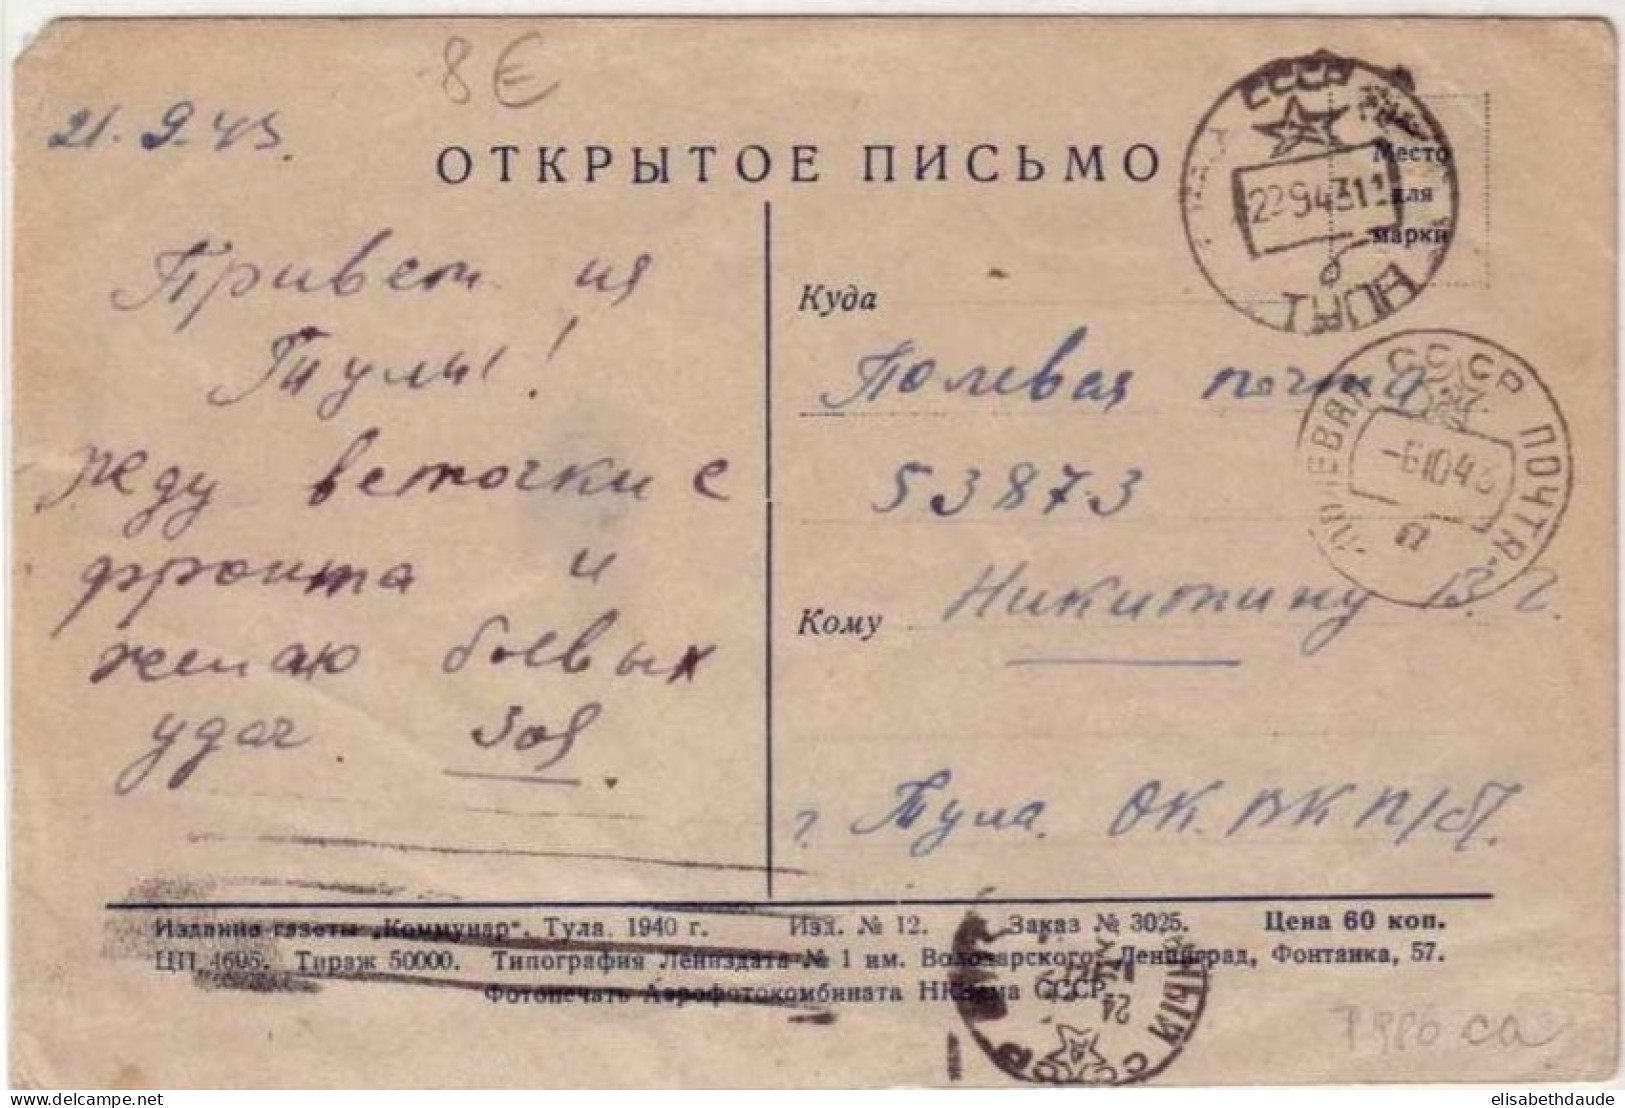 8€
21.9.43.
ОТКРЫТОЕ ПИСЬМО
СССР
22 9 43 11
ТУЛА
Место
для
марки
Привет из
Тулы!
Жду весточки с
фронта и
желаю боевых
удач. Зоя.
Куда
Полевая почта
53873
СССР
ПОЛЕВАЯ ПОЧТА
-6 10 43
Кому
Никитину В. Г.
г. Тула. ОК. ВКП/б/.
Издание газеты „Коммунар“. Тула. 1940 г. Изд. № 12. Заказ № 3025. Цена 60 коп.
ЦП 4605. Тираж 50000. Типография Лениздата № 1 им. Володарского, Ленинград, Фонтанка, 57.
Фотопечать Аэрофотокомбината НКЗема СССР.
24
delcampe.net
elisabethdaude